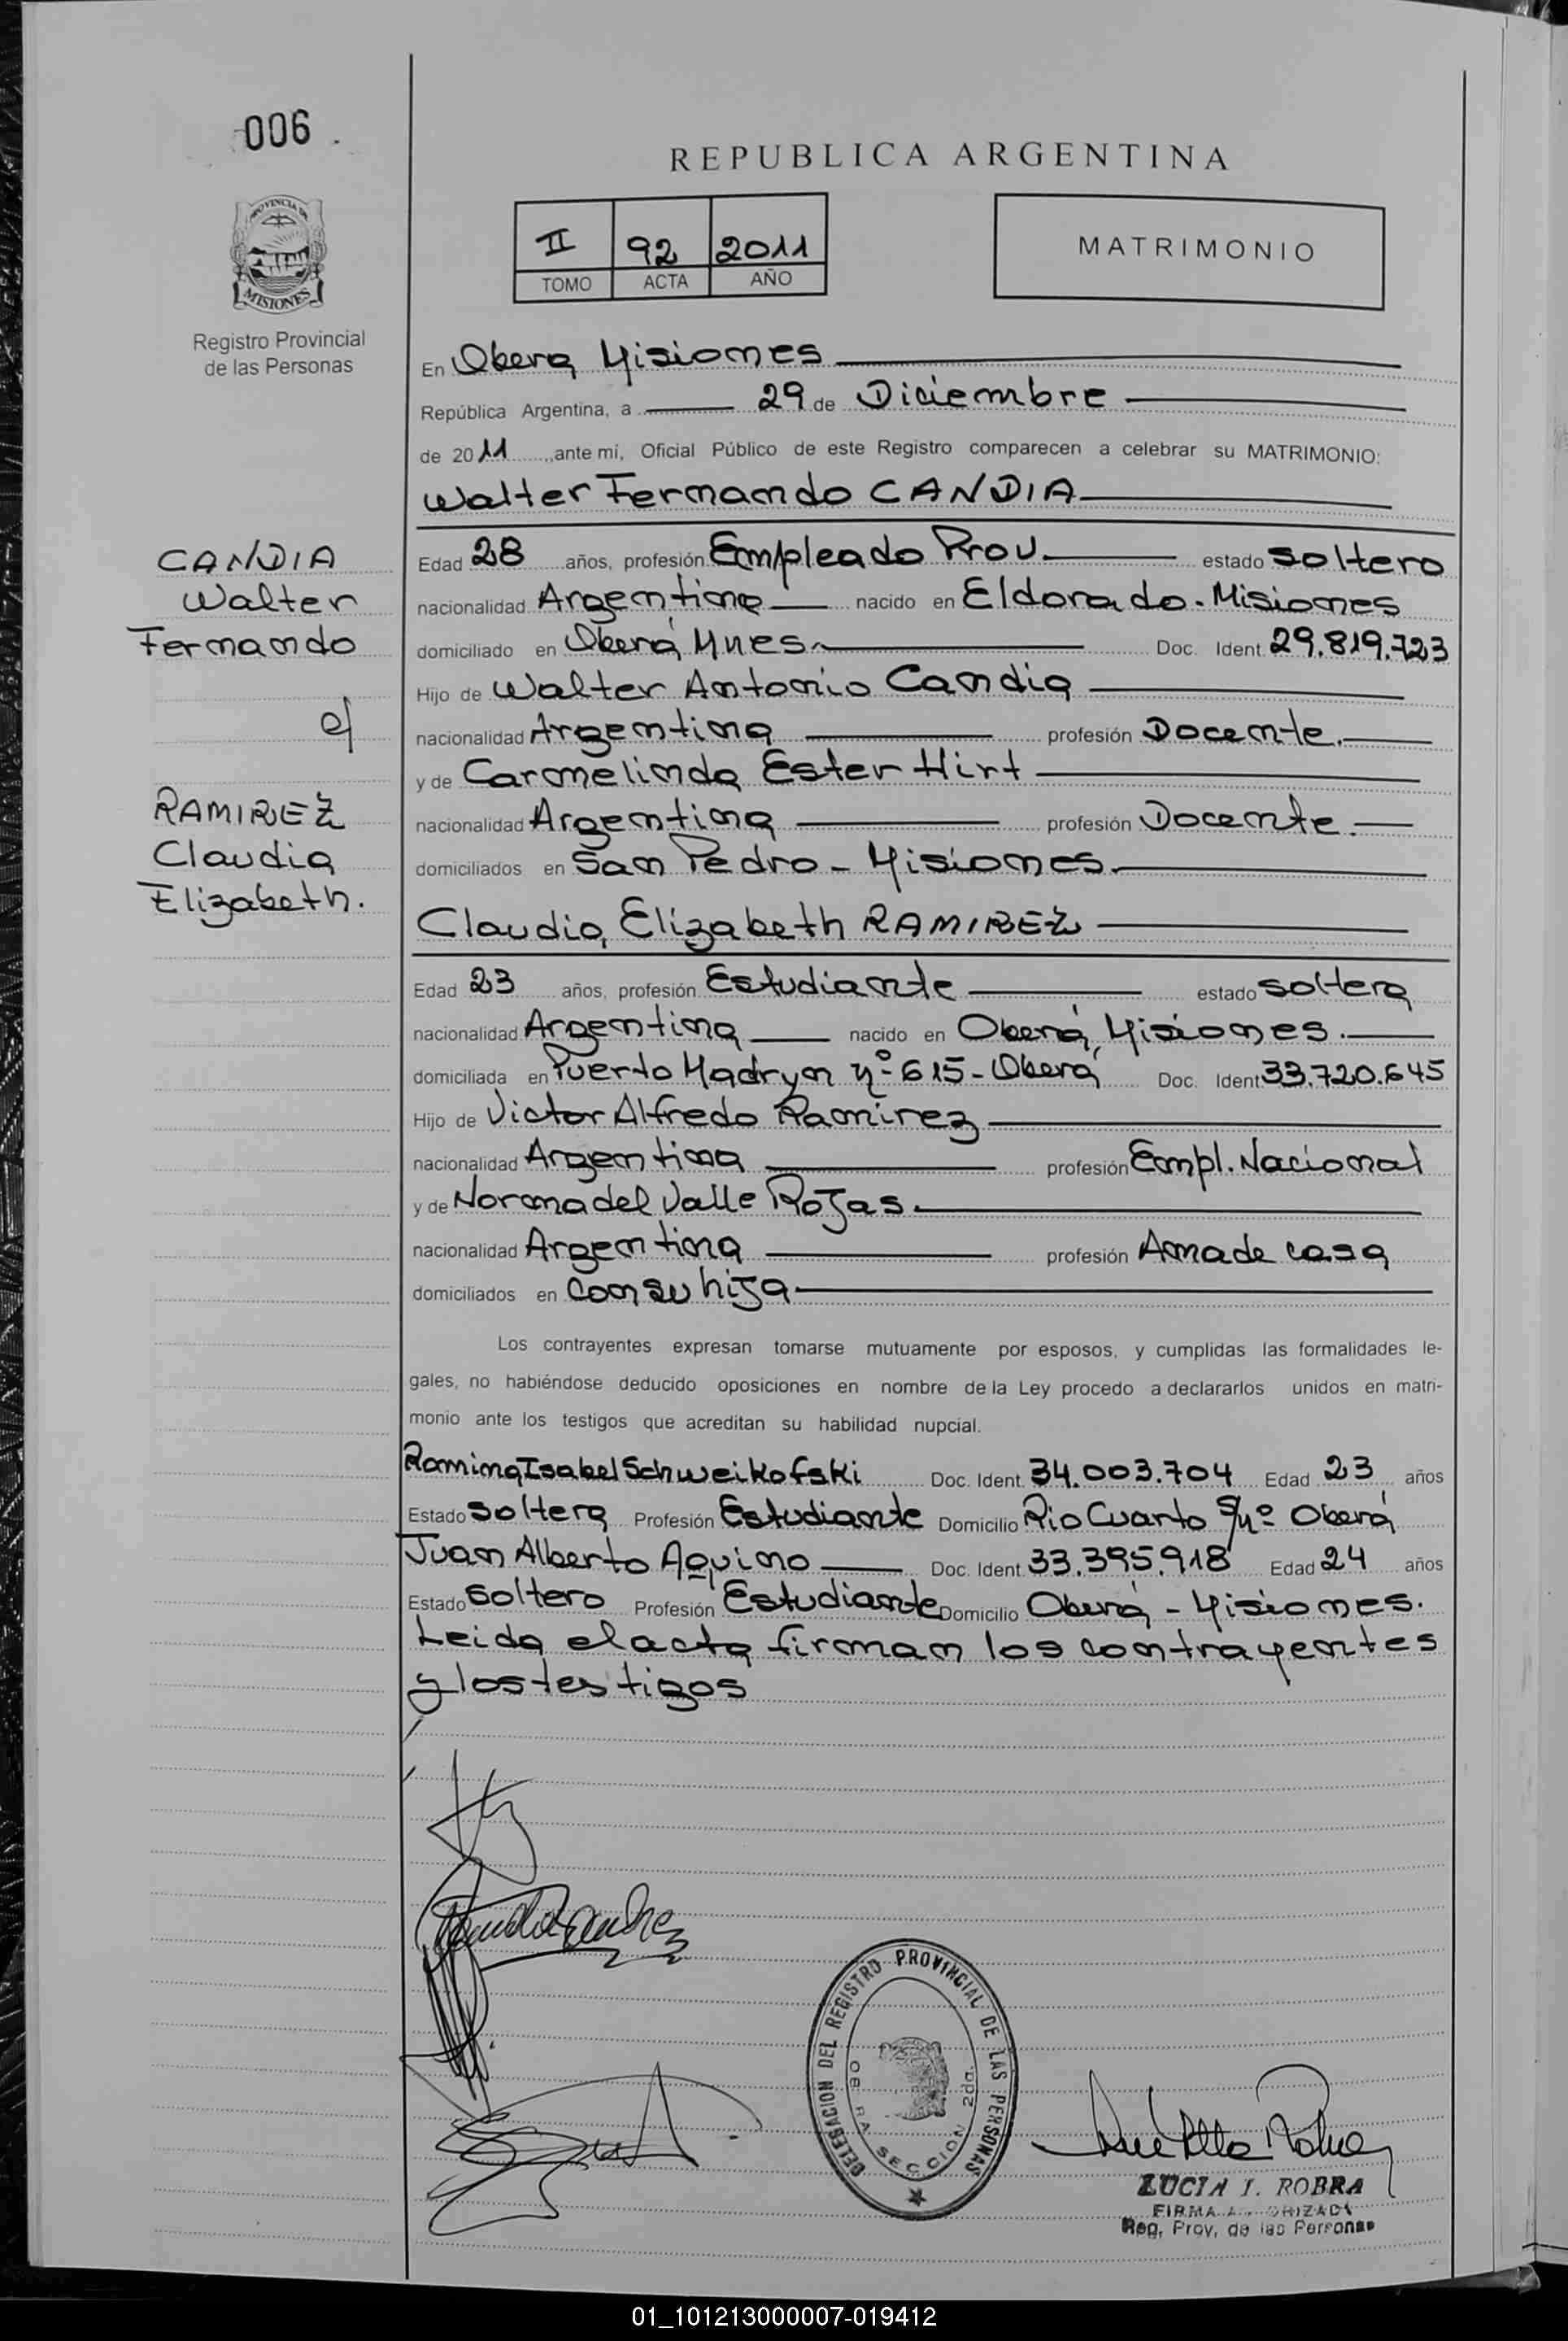 006
REPUBLICA ARGENTINA
PROVINCIA DE
MISIONES
Registro Provincial
de las Personas
II 92 2011
TOMO ACTA AÑO
MATRIMONIO
En Obera, Misiones
República Argentina, a 29 de Diciembre
de 2011, ante mí, Oficial Público de este Registro comparecen a celebrar su MATRIMONIO:
Walter Fernando CANDIA
CANDIA
Walter
Fernando
c/
RAMIREZ
Claudia
Elizabeth.
Edad 28 años, profesión Empleado Prov. estado soltero
nacionalidad Argentina nacido en Eldorado. Misiones
domiciliado en Oberá, Mnes. Doc. Ident. 29.819.723
Hijo de Walter Antonio Candia
nacionalidad Argentina profesión Docente.
y de Carmelinda Ester Hirt
nacionalidad Argentina profesión Docente.
domiciliados en San Pedro - Misiones.
Claudia Elizabeth RAMIREZ
Edad 23 años, profesión Estudiante estado soltera
nacionalidad Argentina nacido en Oberá, Misiones.
domiciliada en Puerto Madryn nº 615 - Oberá Doc. Ident 33.720.645
Hijo de Victor Alfredo Ramirez
nacionalidad Argentina profesión Empl. Nacional
y de Norma del Valle Rojas.
nacionalidad Argentina profesión Ama de casa
domiciliados en con su hija
Los contrayentes expresan tomarse mutuamente por esposos, y cumplidas las formalidades le-
gales, no habiéndose deducido oposiciones en nombre de la Ley procedo a declararlos unidos en matri-
monio ante los testigos que acreditan su habilidad nupcial.
Romina Isabel Schweikofski Doc. Ident. 34.003.704 Edad 23 años
Estado soltera Profesión Estudiante Domicilio Rio Cuarto s/nº Oberá
Juan Alberto Aquino Doc. Ident. 33.395.918 Edad 24 años
Estado soltero Profesión Estudiante Domicilio Oberá - Misiones.
Leida el acta firman los contrayentes
y los testigos
DELEGACION DEL REGISTRO PROVINCIAL DE LAS PERSONAS
OBERA SECCION 2da.
LUCIA I. ROBRA
FIRMA AUTORIZADA
Reg. Prov. de las Personas
01_101213000007-019412